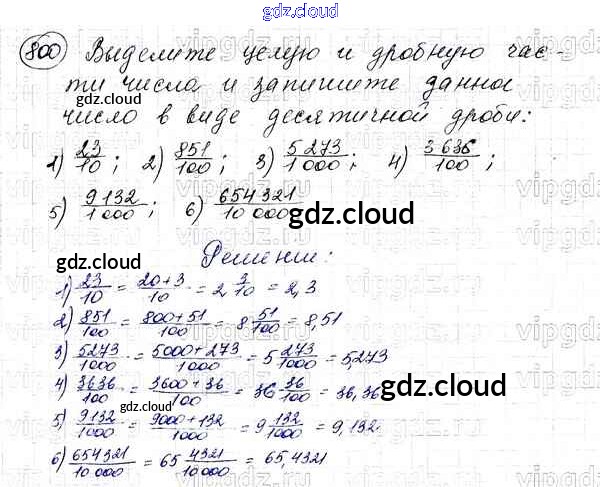 gdz.cloud
800 Выделите целую и дробную час-
ти числа и запишите данное
gdz.cloud
число в виде десятичной дроби:
1) 23/10; 2) 851/100; 3) 5273/1000; 4) 3636/100;
5) 9132/1000; 6) 654321/10000
gdz.cloud
Решение:
gdz.cloud
1) 23/10 = 20+3/10 = 2 3/10 = 2,3
2) 851/100 = 800+51/100 = 8 51/100 = 8,51
3) 5273/1000 = 5000+273/1000 = 5 273/1000 = 5,273
4) 3636/100 = 3600+36/100 = 36 36/100 = 36,36
gdz.cloud
gdz.cloud
5) 9132/1000 = 9000+132/1000 = 9 132/1000 = 9,132
6) 654321/10000 = 65 4321/10000 = 65,4321
gdz.cloud